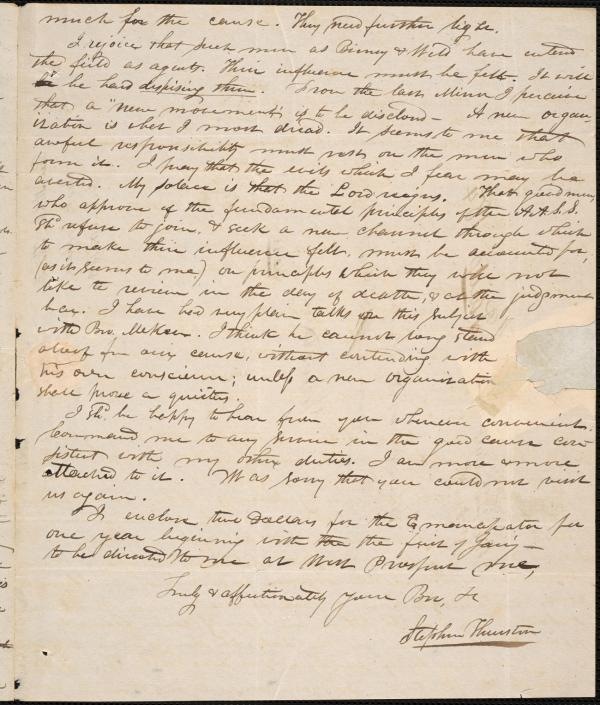 much for the cause. They need further light.
I rejoice that such men as Birney & Weld have entered
the field as agents. Their influence must be felt. It will
be hard dispising them. From the last Mirror I perceive
that a "new movement" is to be disclosed – A new organ-
ization is what I most dread. It seems to me that
awful responsibility must rest on the men who
form it. I pray that the evils which I fear may be
averted. My solace is that the Lord reigns. That good men,
who approve of the fundamental principles of the A.A.S.S.
shd. refuse to join, & seek a new channel through which
to make their influence felt, must be accounted for,
(as it seems to me) on principles which they will not
like to review in the day of death, & at the judgment
bar. I have had very plain talks on this subject
with Bro. McKeen. I think he cannot long stand
aloof fm our cause, without contending with
his own conscience; unless a new organization
shall prove a quietus.
I shd. be happy to hear from you whenever convenient.
Command me to any service in the good cause con-
sistent with my other duties. I am more & more
attached to it. Was sorry that you could not visit
us again.
I enclose two Dollars for the Emancipator for
one year beginning with the the first of Jan'y –
to be directed to me at West Prospect Me,
Truly & affectionately your Bro, &c
Stephen Thurston